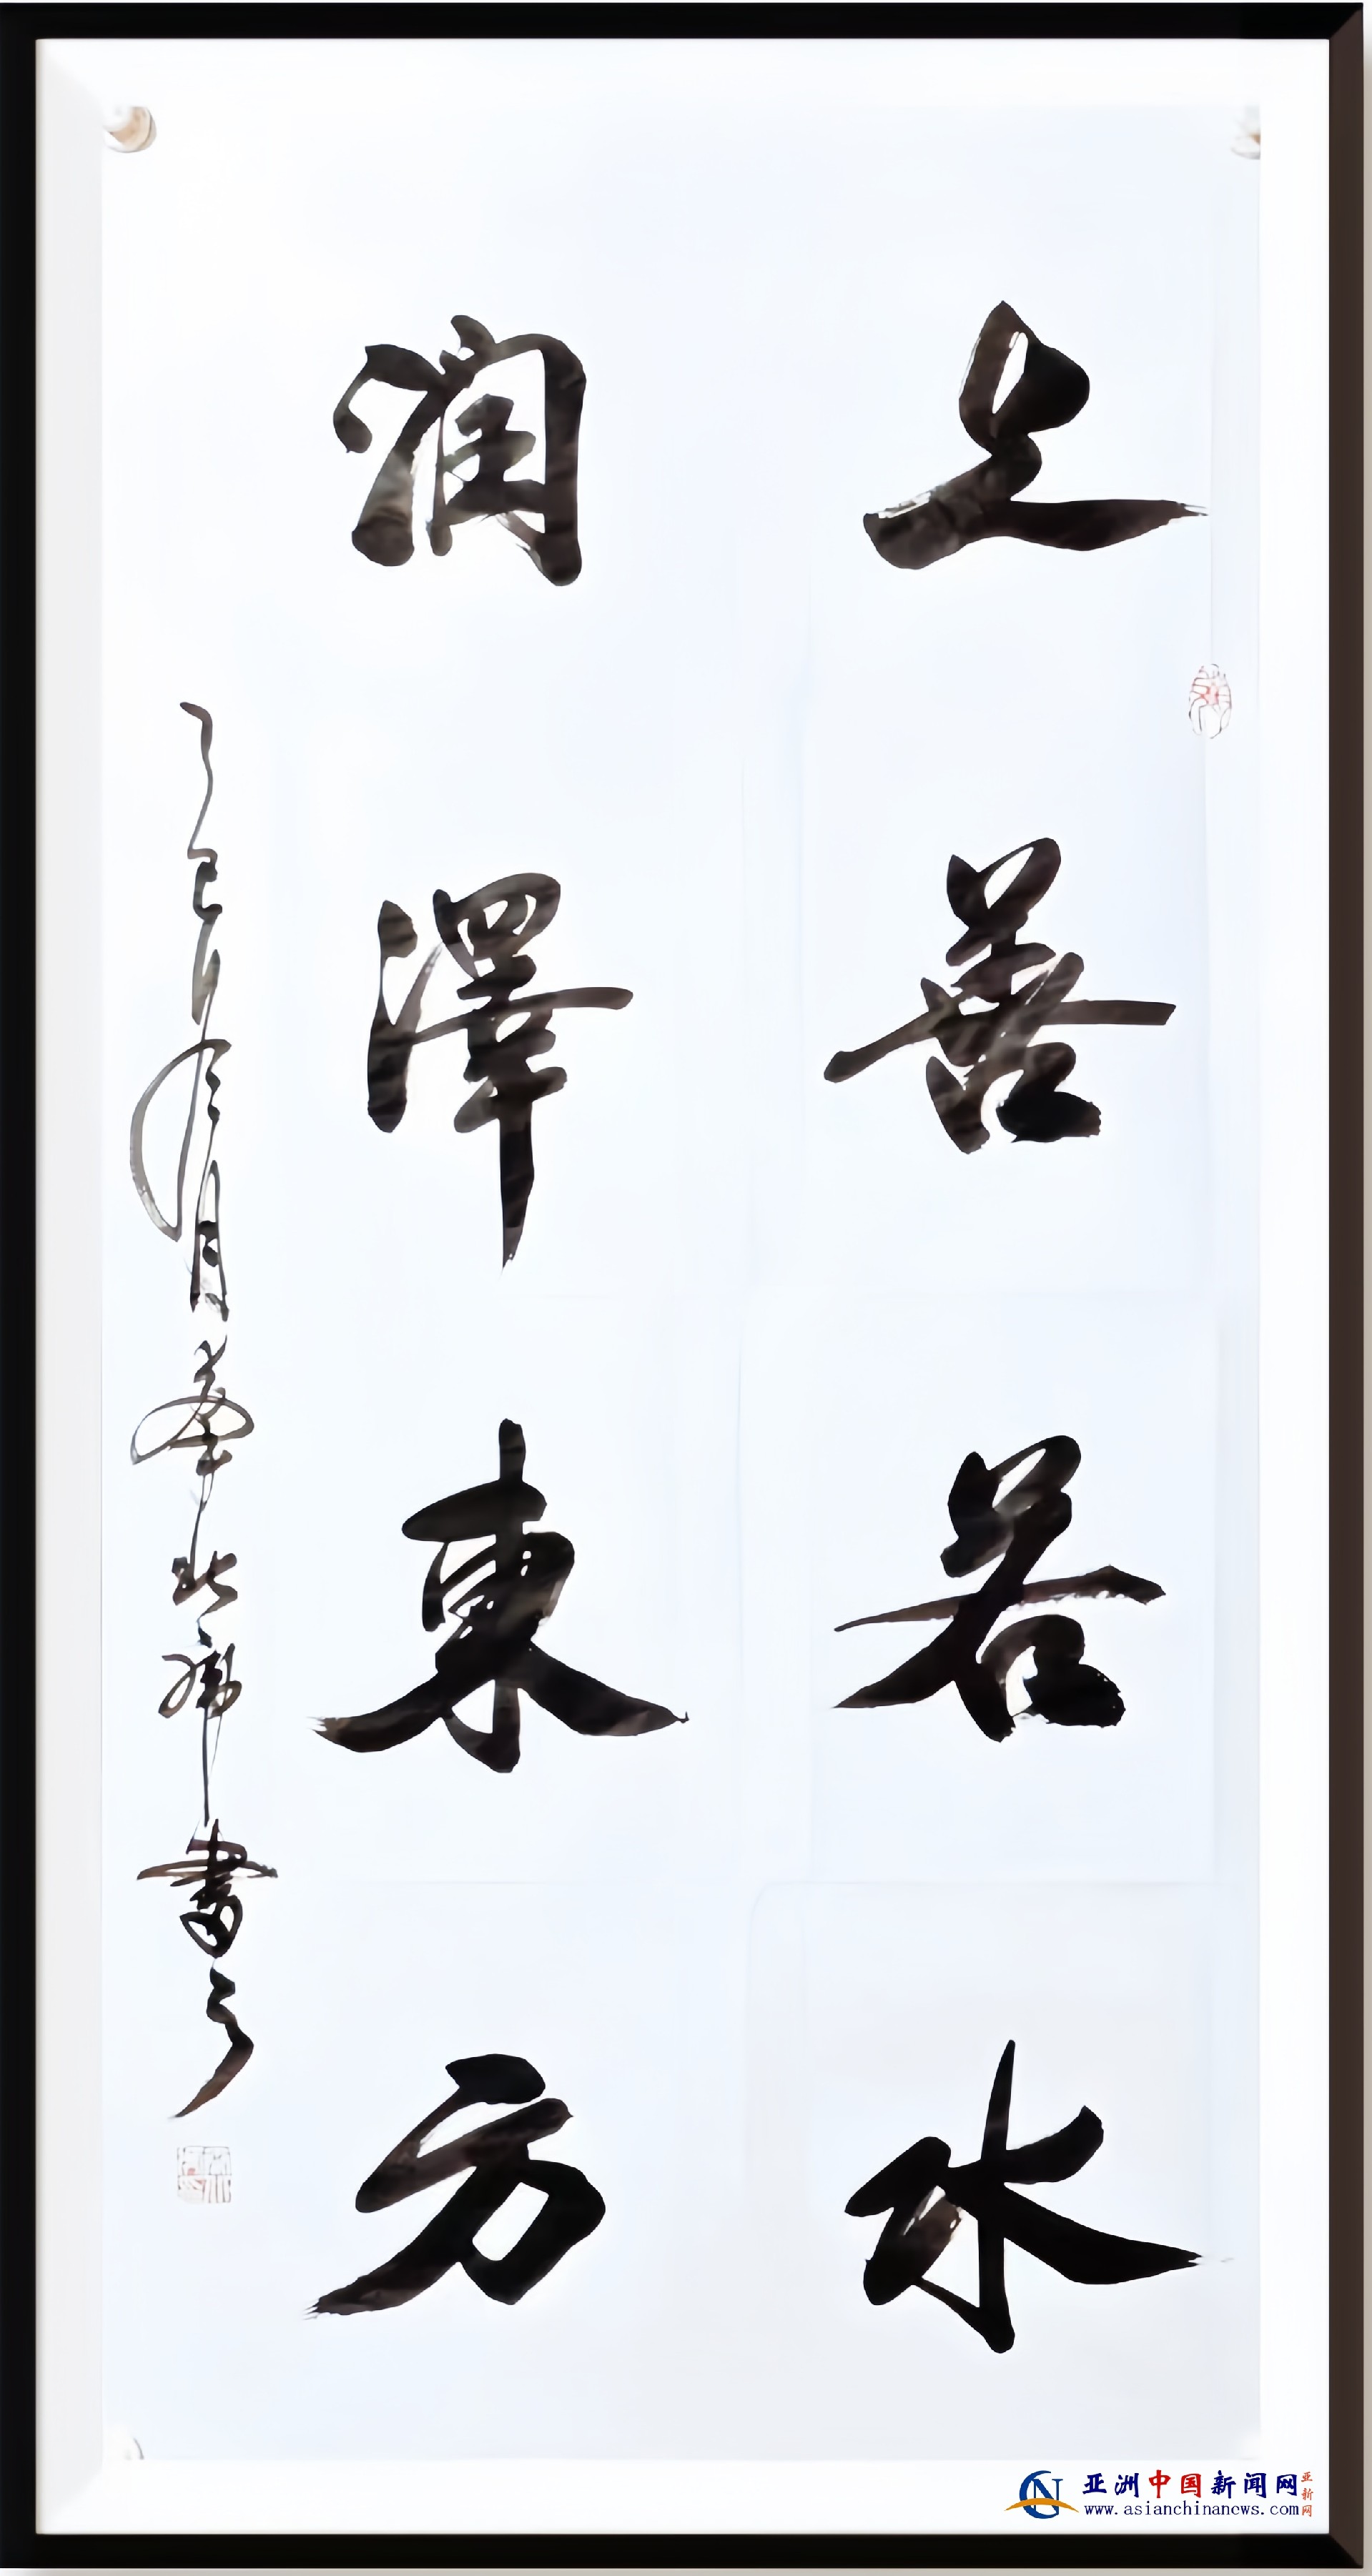 上善若水
润泽東方
乙巳年 月 书之
亚洲中国新闻网
亚新网
www.asianchinanews.com